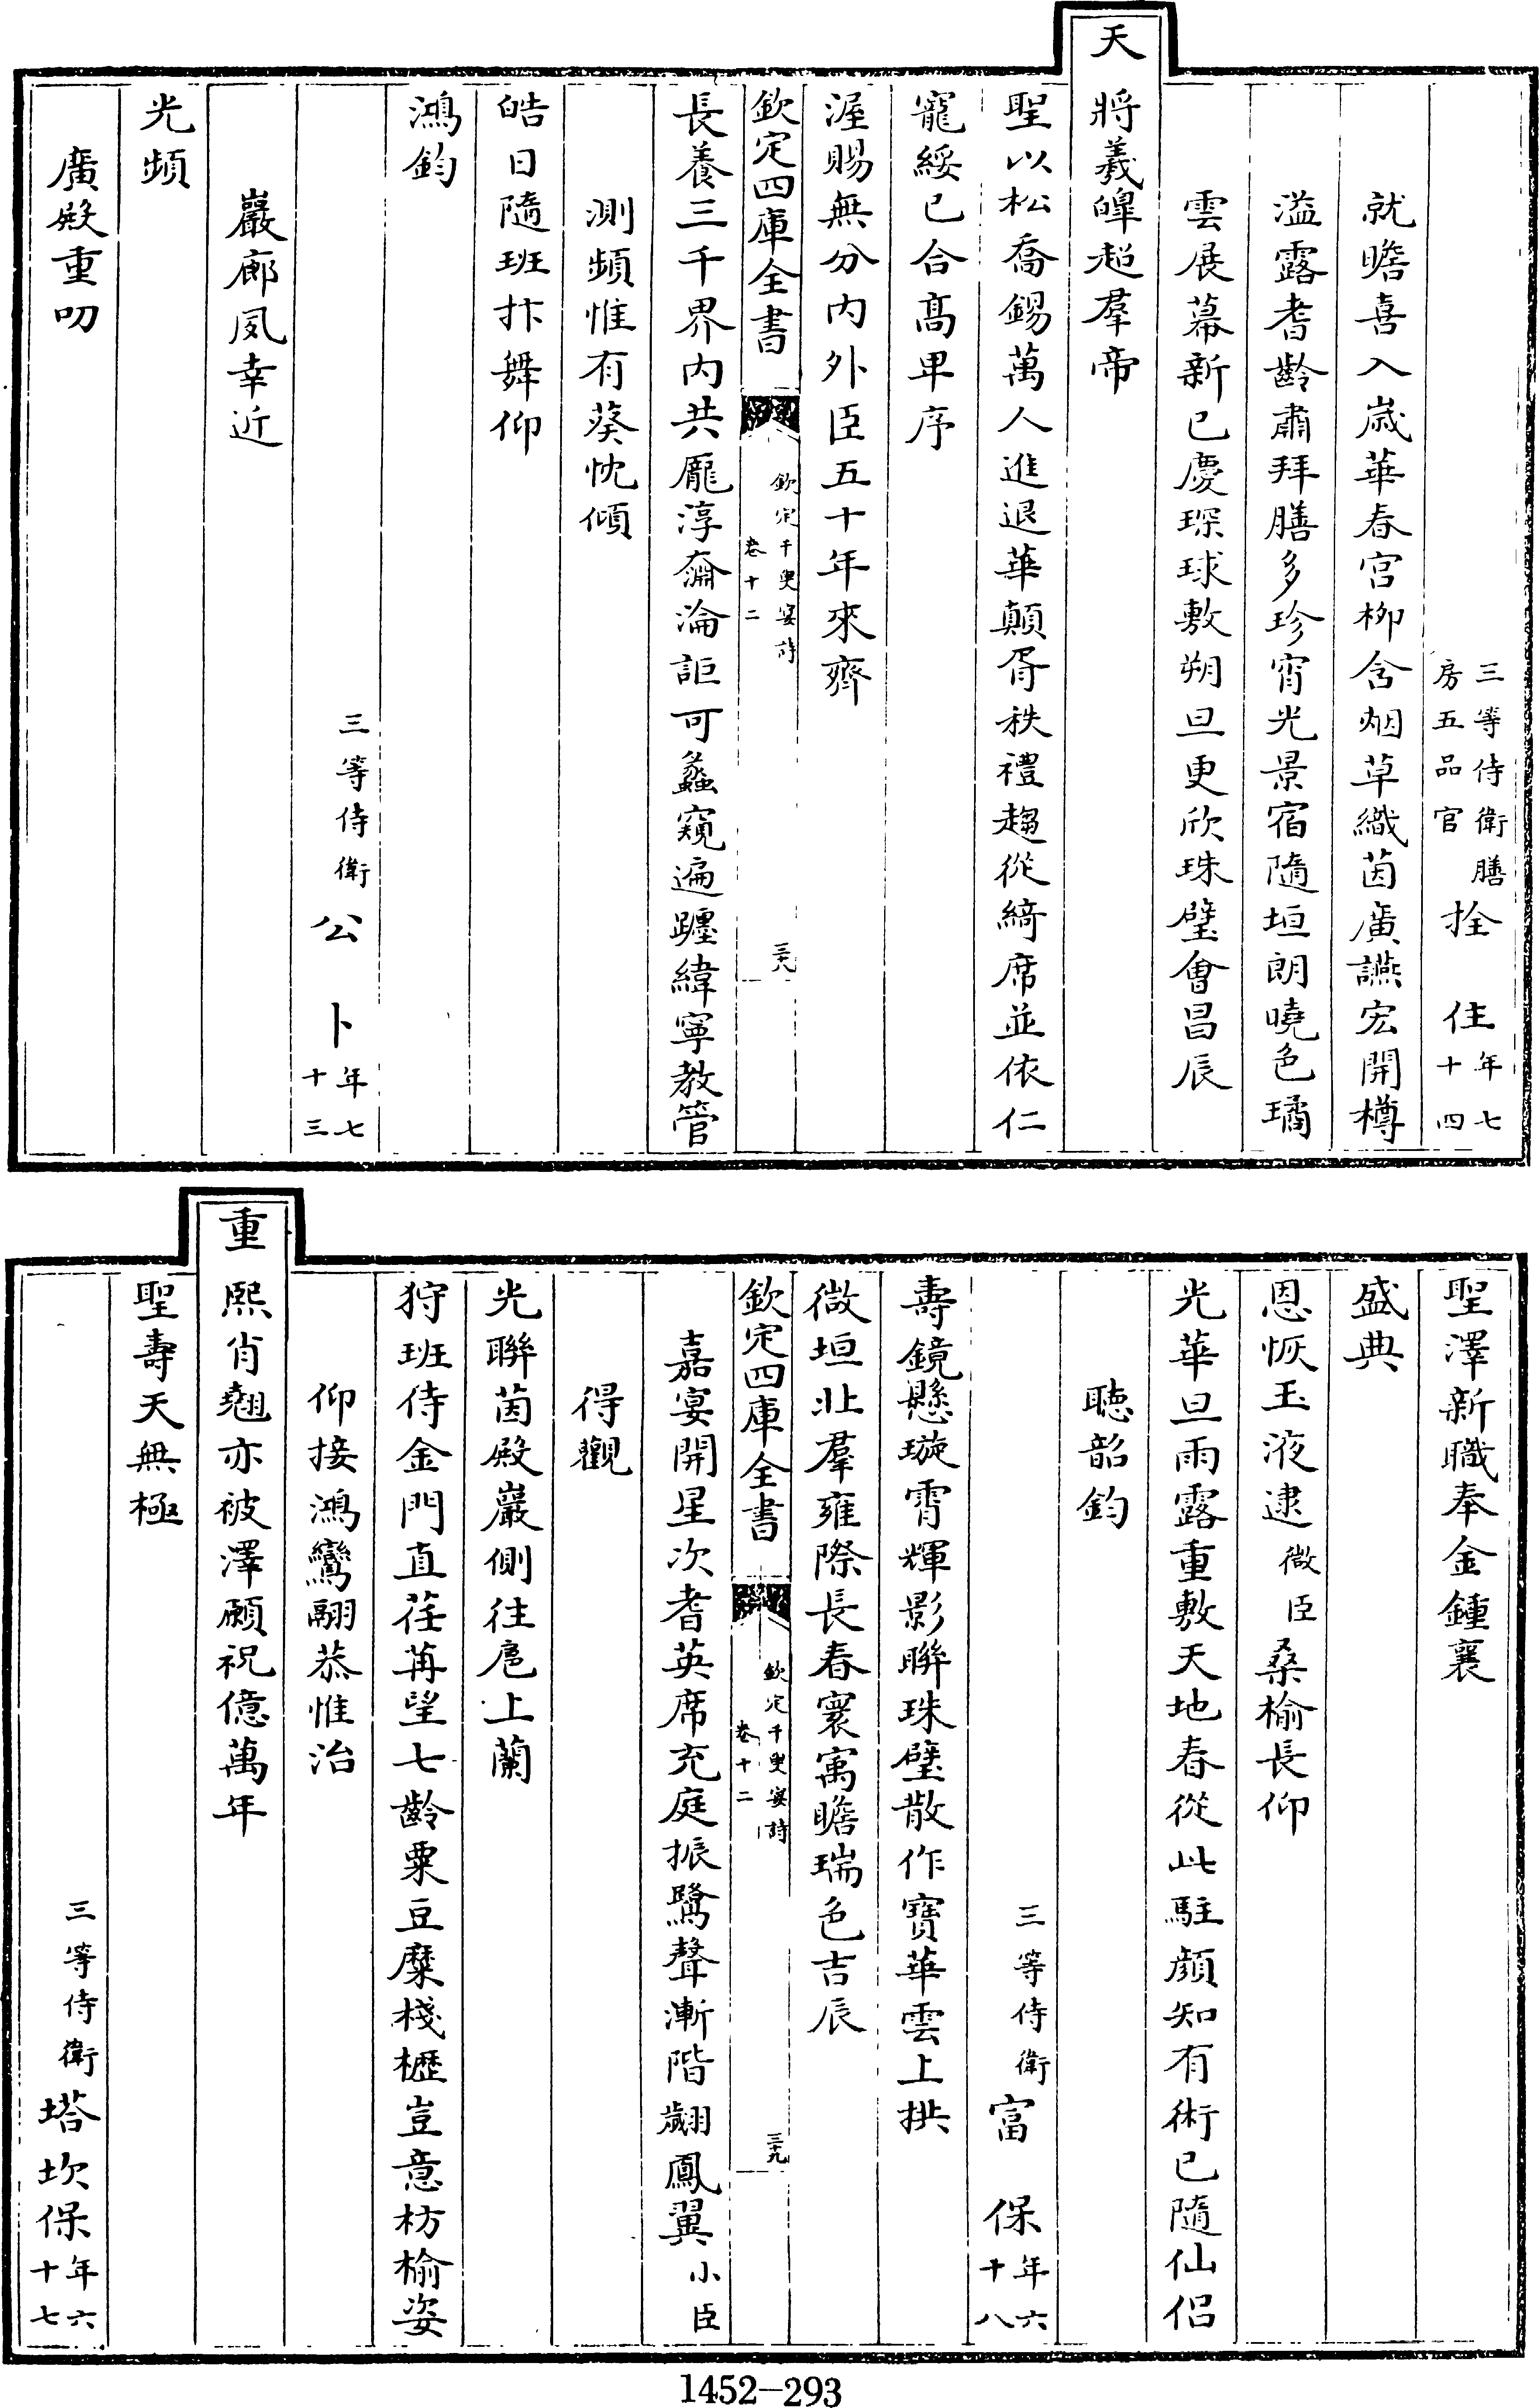 三等侍衛膳房五品官拴住年七十四
就瞻喜入嵗華春宫柳含烟草織茵廣讌宏開樽
溢露耆齡肅拜膳多珍宵光景宿隨垣朗曉色璚
雲展幕新已慶琛球敷朔旦更欣珠璧會昌辰
天將羲皥超羣帝
聖以松喬錫萬人進退華顛胥秩禮趨從綺席並依仁
寵綏已合髙卑序
渥賜無分内外臣五十年來齊
欽定四庫全書
欽定千叟宴詩
卷十二
三十八
長養三千界内共龎淳奫淪詎可蠡窺遍躔緯寧教管
測頻惟有葵忱傾
皓日隨班抃舞仰
鴻鈞
三等侍衛公卜年七十三
巖廊夙幸近
光頻
廣殿重叨
聖澤新職奉金鍾襄
盛典
恩恢玉液逮微臣桑榆長仰
光華旦雨露重敷天地春從此駐顔知有術已隨仙侣
聴韶鈞
三等侍衛富保年六十八
壽鏡懸璇霄輝影聨珠璧散作寶華雲上拱
微垣北羣雍際長春寰㝢瞻瑞色吉辰
欽定四庫全書
欽定千叟宴詩
卷十二
三十九
嘉宴開星次耆英席充庭振鷺聲漸階翽鳳翼小臣
得觀
光聨茵殿巖側往扈上蘭
狩班侍金門直荏苒望七齡粟豆糜棧櫪豈意枋榆姿
仰接鴻鸞翮恭惟治
重熙肖翹亦被澤願祝億萬年
聖壽天無極
三等侍衛塔坎保年六十七
1452-293